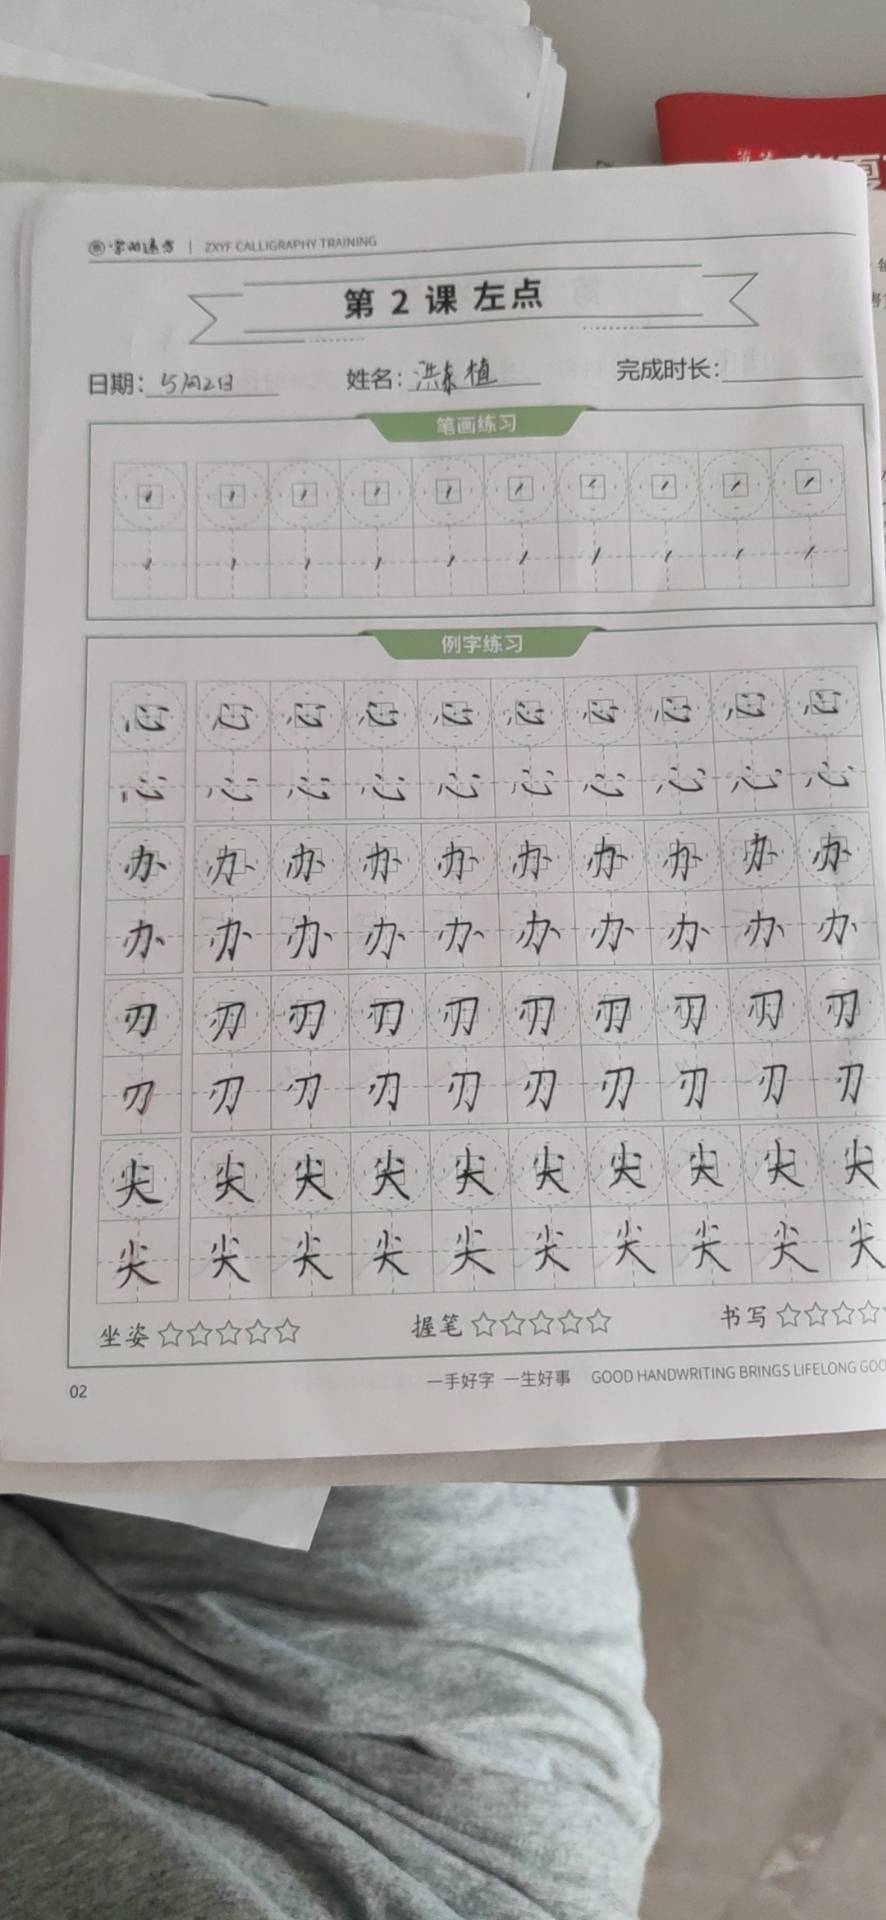 字如速方 | ZXYF CALLIGRAPHY TRAINING
第 2 课 左点
日期：5月2日 姓名：洪 植 完成时长：
笔画练习
例字练习
心 心 心 心 心 心 心 心 心 心
心 心 心 心 心 心 心 心 心 心
办 办 办 办 办 办 办 办 办 办
办 办 办 办 办 办 办 办 办 办
刃 刃 刃 刃 刃 刃 刃 刃 刃 刃
刃 刃 刃 刃 刃 刃 刃 刃 刃 刃
尖 尖 尖 尖 尖 尖 尖 尖 尖 尖
尖 尖 尖 尖 尖 尖 尖 尖 尖 尖
坐姿☆☆☆☆☆ 握笔☆☆☆☆☆ 书写☆☆☆☆
02 一手好字 一生好事 GOOD HANDWRITING BRINGS LIFELONG